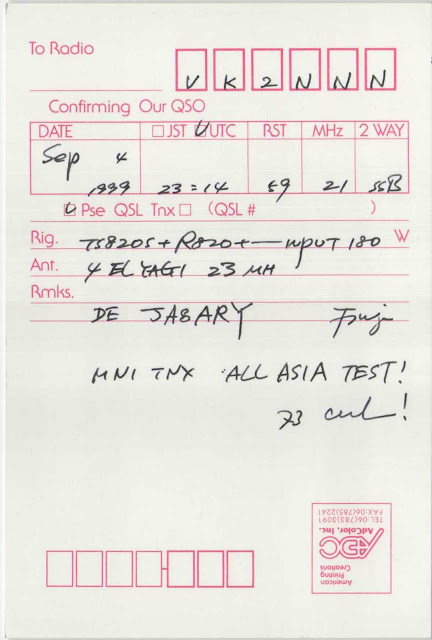 To Radio
VK2NNN
Confirming Our QSO
DATE □JST ☑UTC RST MHz 2 WAY
Sep 4
1999 23:14 59 21 SSB
☑ Pse QSL Tnx □ (QSL # )
Rig. TS820S + R820 + — INPUT 180 W
Ant. 4 EL YAGI 23 MH
Rmks.
DE JA8ARY Fuji
MNI TNX ALL ASIA TEST!
73 cul!
American
Printing
Creations
ADC
AdColor, Inc.
TEL:06(783)3091
FAX:06(785)2241